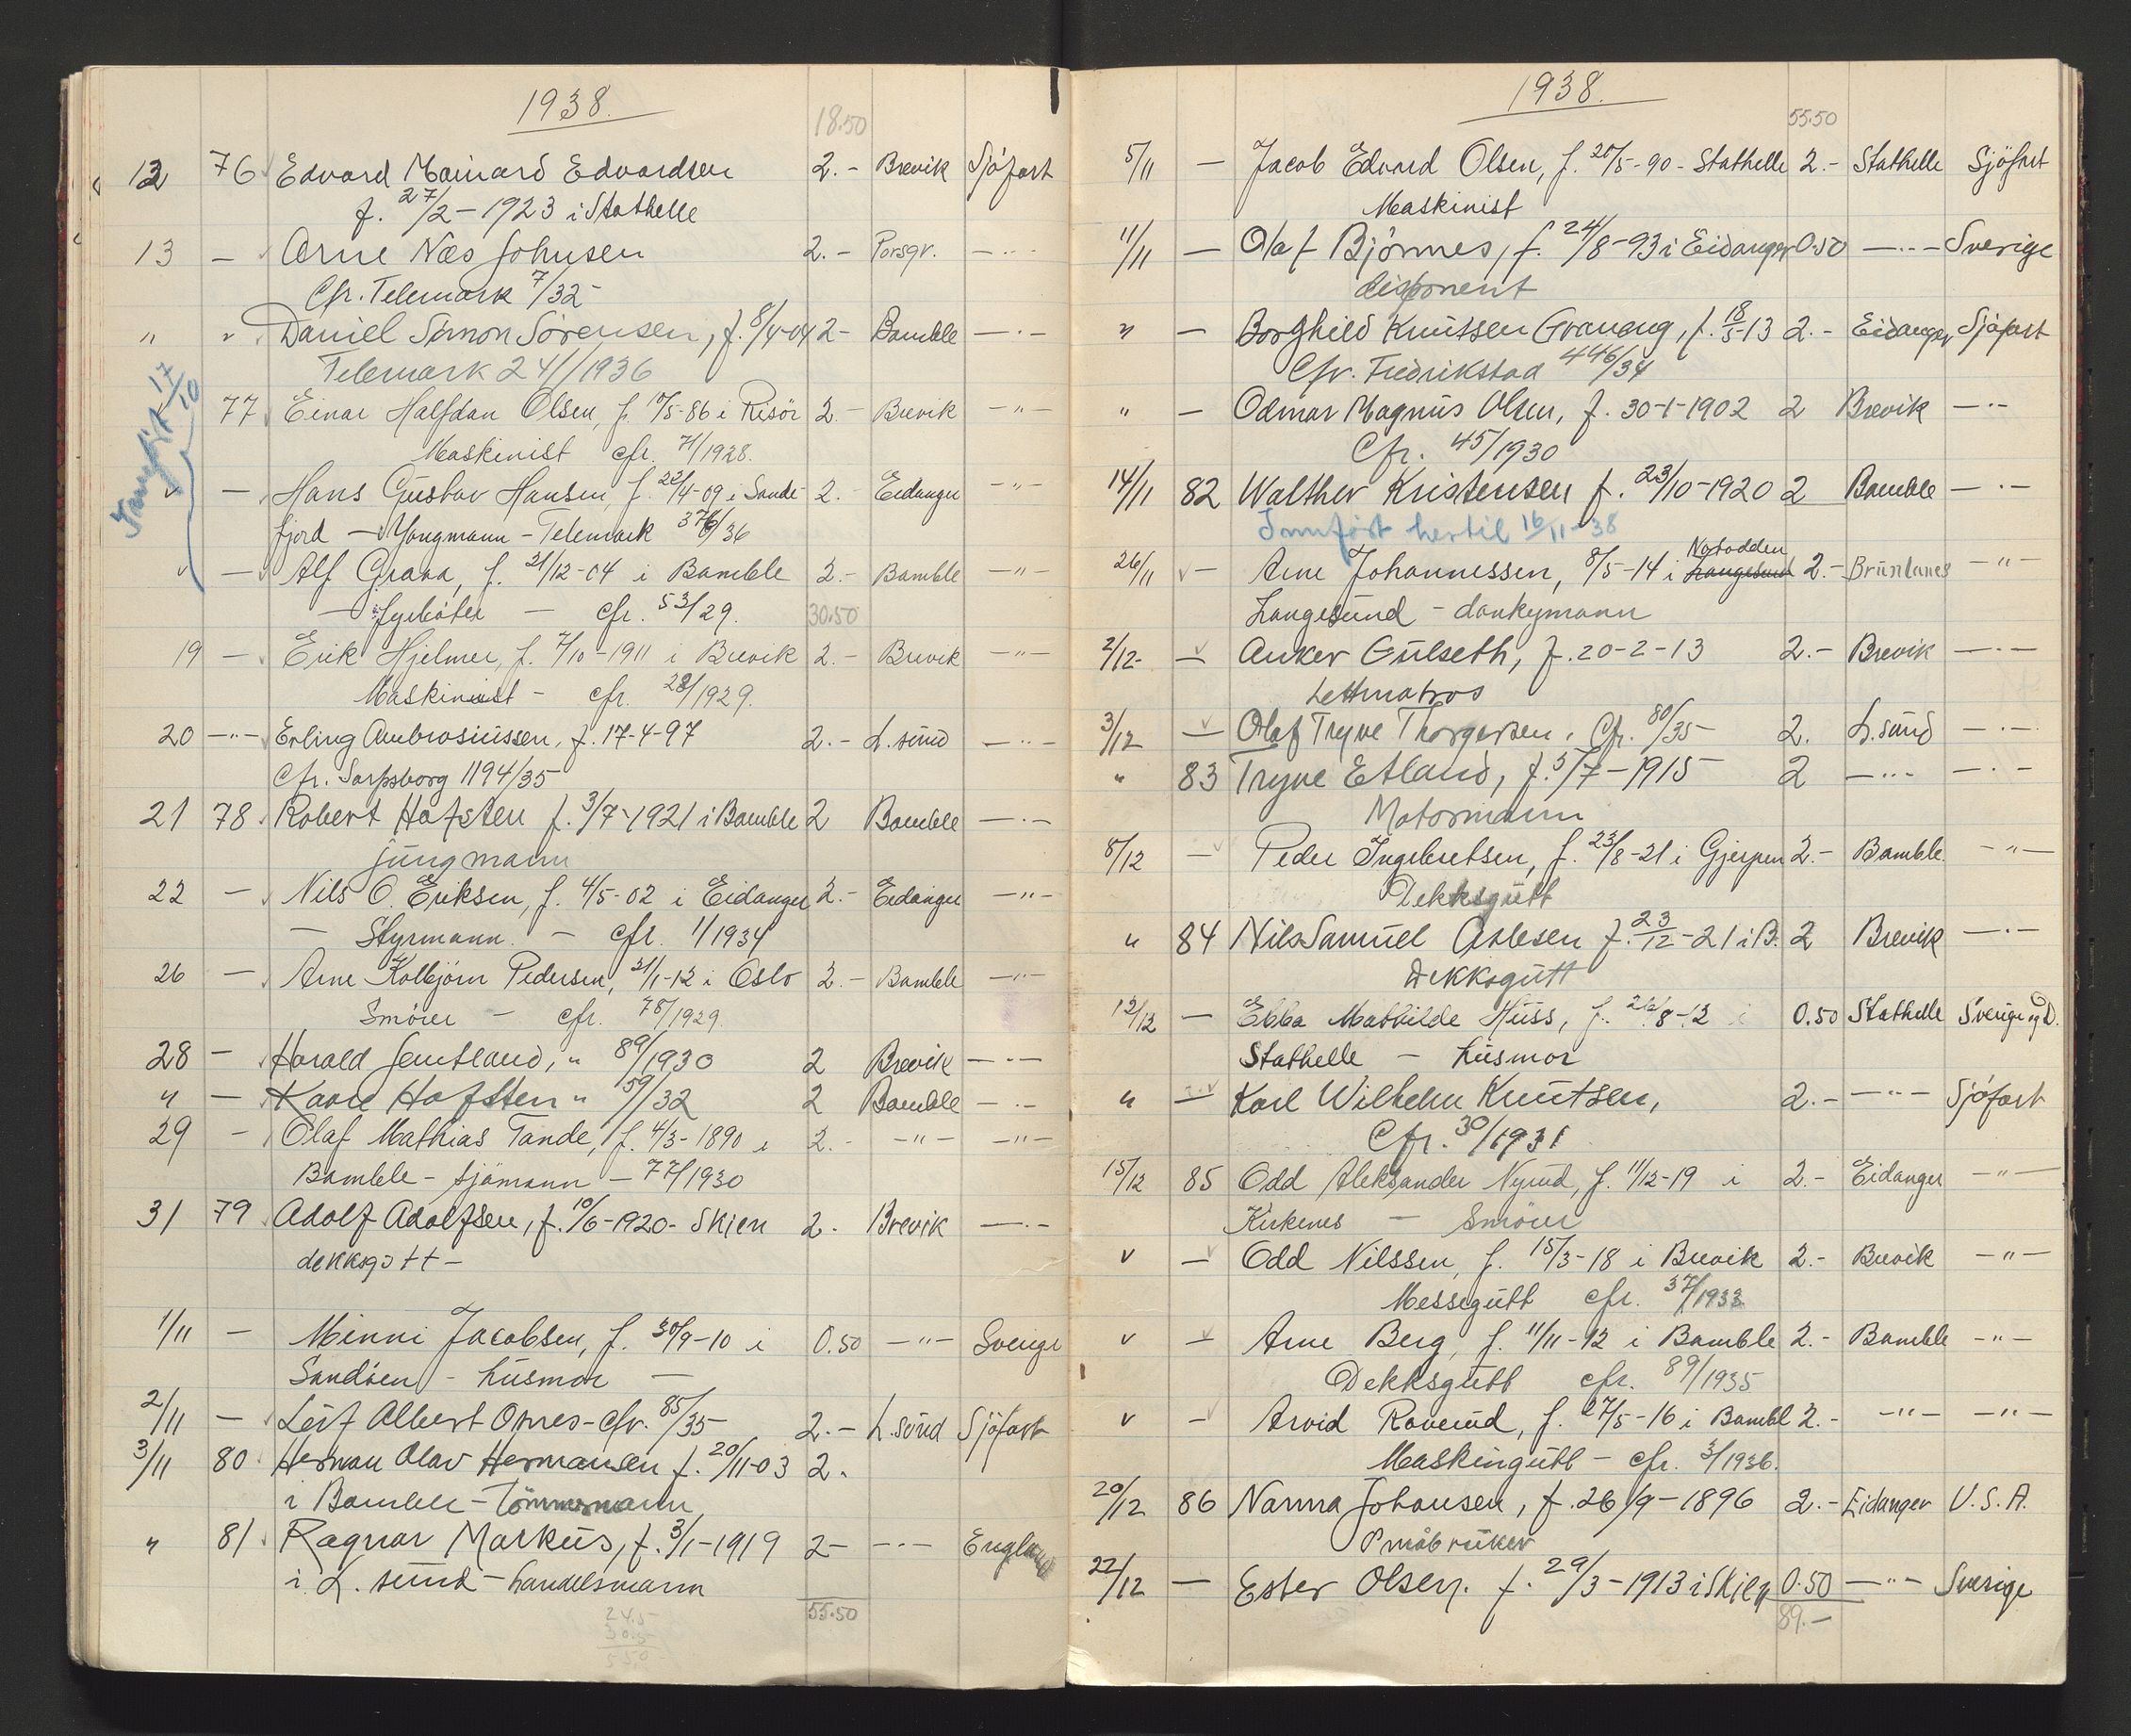 1938.
18.50
12 76 Edvard Mainard Edvardsen 2.- Brevik Sjöfart
f. 27/2-1923 i Stathelle
13 — Arne Næs Johnsen 2.- Porsgr. —"—
Cfr. Telemark 7/32
" " Daniel Simon Sörensen, f. 8/4-04 2- Bamble —"—
Telemark 241/1936
Innført 17/10
77 Einar Halfdan Olsen, f. 10/5-86 i Risör 2- Brevik —"—
Maskinist cfr. 71/1928.
" — Hans Gustav Hansen, f. 22/4-09 i Sande- 2. Eidanger —"—
fjord — Yongmann - Telemark 376/36
" — Alf Grava, f. 21/12-04 i Bamble 2.- Bamble —"—
— fyrböter — cfr. 53/29. 30.50
19 — Erik Hjelmer, f. 7/10-1911 i Brevik 2.- Brevik —"—
Maskinist - cfr. 28/1929.
20 —"— Erling Ambrosiussen, f. 17-4-97 2.- L.sund —"—
Cfr. Sarpsborg 1194/35
21 78 Robert Hafsten f. 3/7-1921 i Bamble 2 Bamble —"—
jungmann
22 — Nils O. Eriksen, f. 4/5-02 i Eidanger 2.- Eidanger —"—
— Styrmann. — cfr. 1/1934
26 — Arne Kolbjörn Pedersen, 21/1-12 i Oslo 2.- Bamble —"—
Smörer — cfr. 78/1929.
28 — Harald Jemtland, " 89/1930 2 Brevik —"—
" — Kaare Hafsten " 59/32 2 Bamble —"—
29 — Olaf Mathias Tande, f. 4/3-1890 i 2.- —"— —"—
Bamble - sjömann — 77/1930
31 79 Adolf Adolfsen, f. 10/6-1920- Skien 2. Brevik —"—
dekksgutt —
1/11 — Minni Jacobsen, f. 30/9-10 i 0.50 —"— Sverige
Sandöen - husmor —
2/11 — Leif Albert Omres - cfr. 85/35 2.- L.sund Sjöfart
3/11 80 Herman Olav Hermansen f. 20/11-03 2.
i Bamble - Tömmermann
" 81 Ragnar Markus, f. 3/1-1919 2- —"— England
i L. sund - handelsmann
24.5
30.5
55.0
55.50
1938.
55.50
5/11 — Jacob Edvard Olsen, f. 20/5-90- Stathelle 2.- Stathelle Sjöfart
Maskinist
11/11 — Olaf Björnnes, f. 24/8-93 i Eidanger 0.50 —"— Sverige
disponent
" — Borghild Knutsen Gravang, f. 18/5-13 2.- Eidanger Sjöfart
Cfr. Fredrikstad 446/34
" — Odmar Magnus Olsen, f. 30-1-1902 2 Brevik —"—
Cfr. 45/1930
14/11 82 Walther Kristensen f. 23/10-1920 2 Bamble —"—
Innført hertil 16/11-38
Notodden
26/11 — Arne Johannessen, 8/5-14 i Langesund 2.- Brunlanes —"—
Langesund - donkymann
2/12 — Anker Gulseth, f. 20-2-13 2.- Brevik —"—
Lettmatros
3/12 — Olaf Tryve Thorgersen. Cfr. 80/35 2. L.sund —"—
" 83 Tryve Etland, f. 5/7-1915 2 —"— —"—
Motormann
8/12 — Peder Ingebretsen, f. 23/8-21 i Gjerpen 2.- Bamble —"—
Dekksgutt
" 84 Nils Samuel Aslesen f. 23/12-21 i B. 2 Brevik —"—
Dekksgutt
12/12 — Ebba Mathilde Huss, f. 26/8-12 i 0.50 Stathelle Sverige og D.
Stathelle — husmor
" — Karl Wilhelm Knutsen, 2.- —"— Sjöfart
Cfr. 30/1931
15/12 85 Odd Aleksander Nyrud, f. 11/12-19 i 2.- Eidanger —"—
Kirkenes — Smörer
" — Odd Nilssen, f. 15/3-18 i Brevik 2.- Brevik —"—
Messegutt cfr. 37/1933
" — Arne Berg, f. 11/11-12 i Bamble 2.- Bamble —"—
Dekksgutt cfr. 89/1935
" — Arvid Raverud, f. 27/5-16 i Bambl 2.- —"— —"—
Maskingutt - cfr. 3/1936.
20/12 86 Nanna Johansen, f. 26/9-1896 2.- Eidanger U.S.A.
Småbruker
22/12 — Ester Olsen. f. 29/3-1913 i Skien 0.50 —"— Sverige
89.-